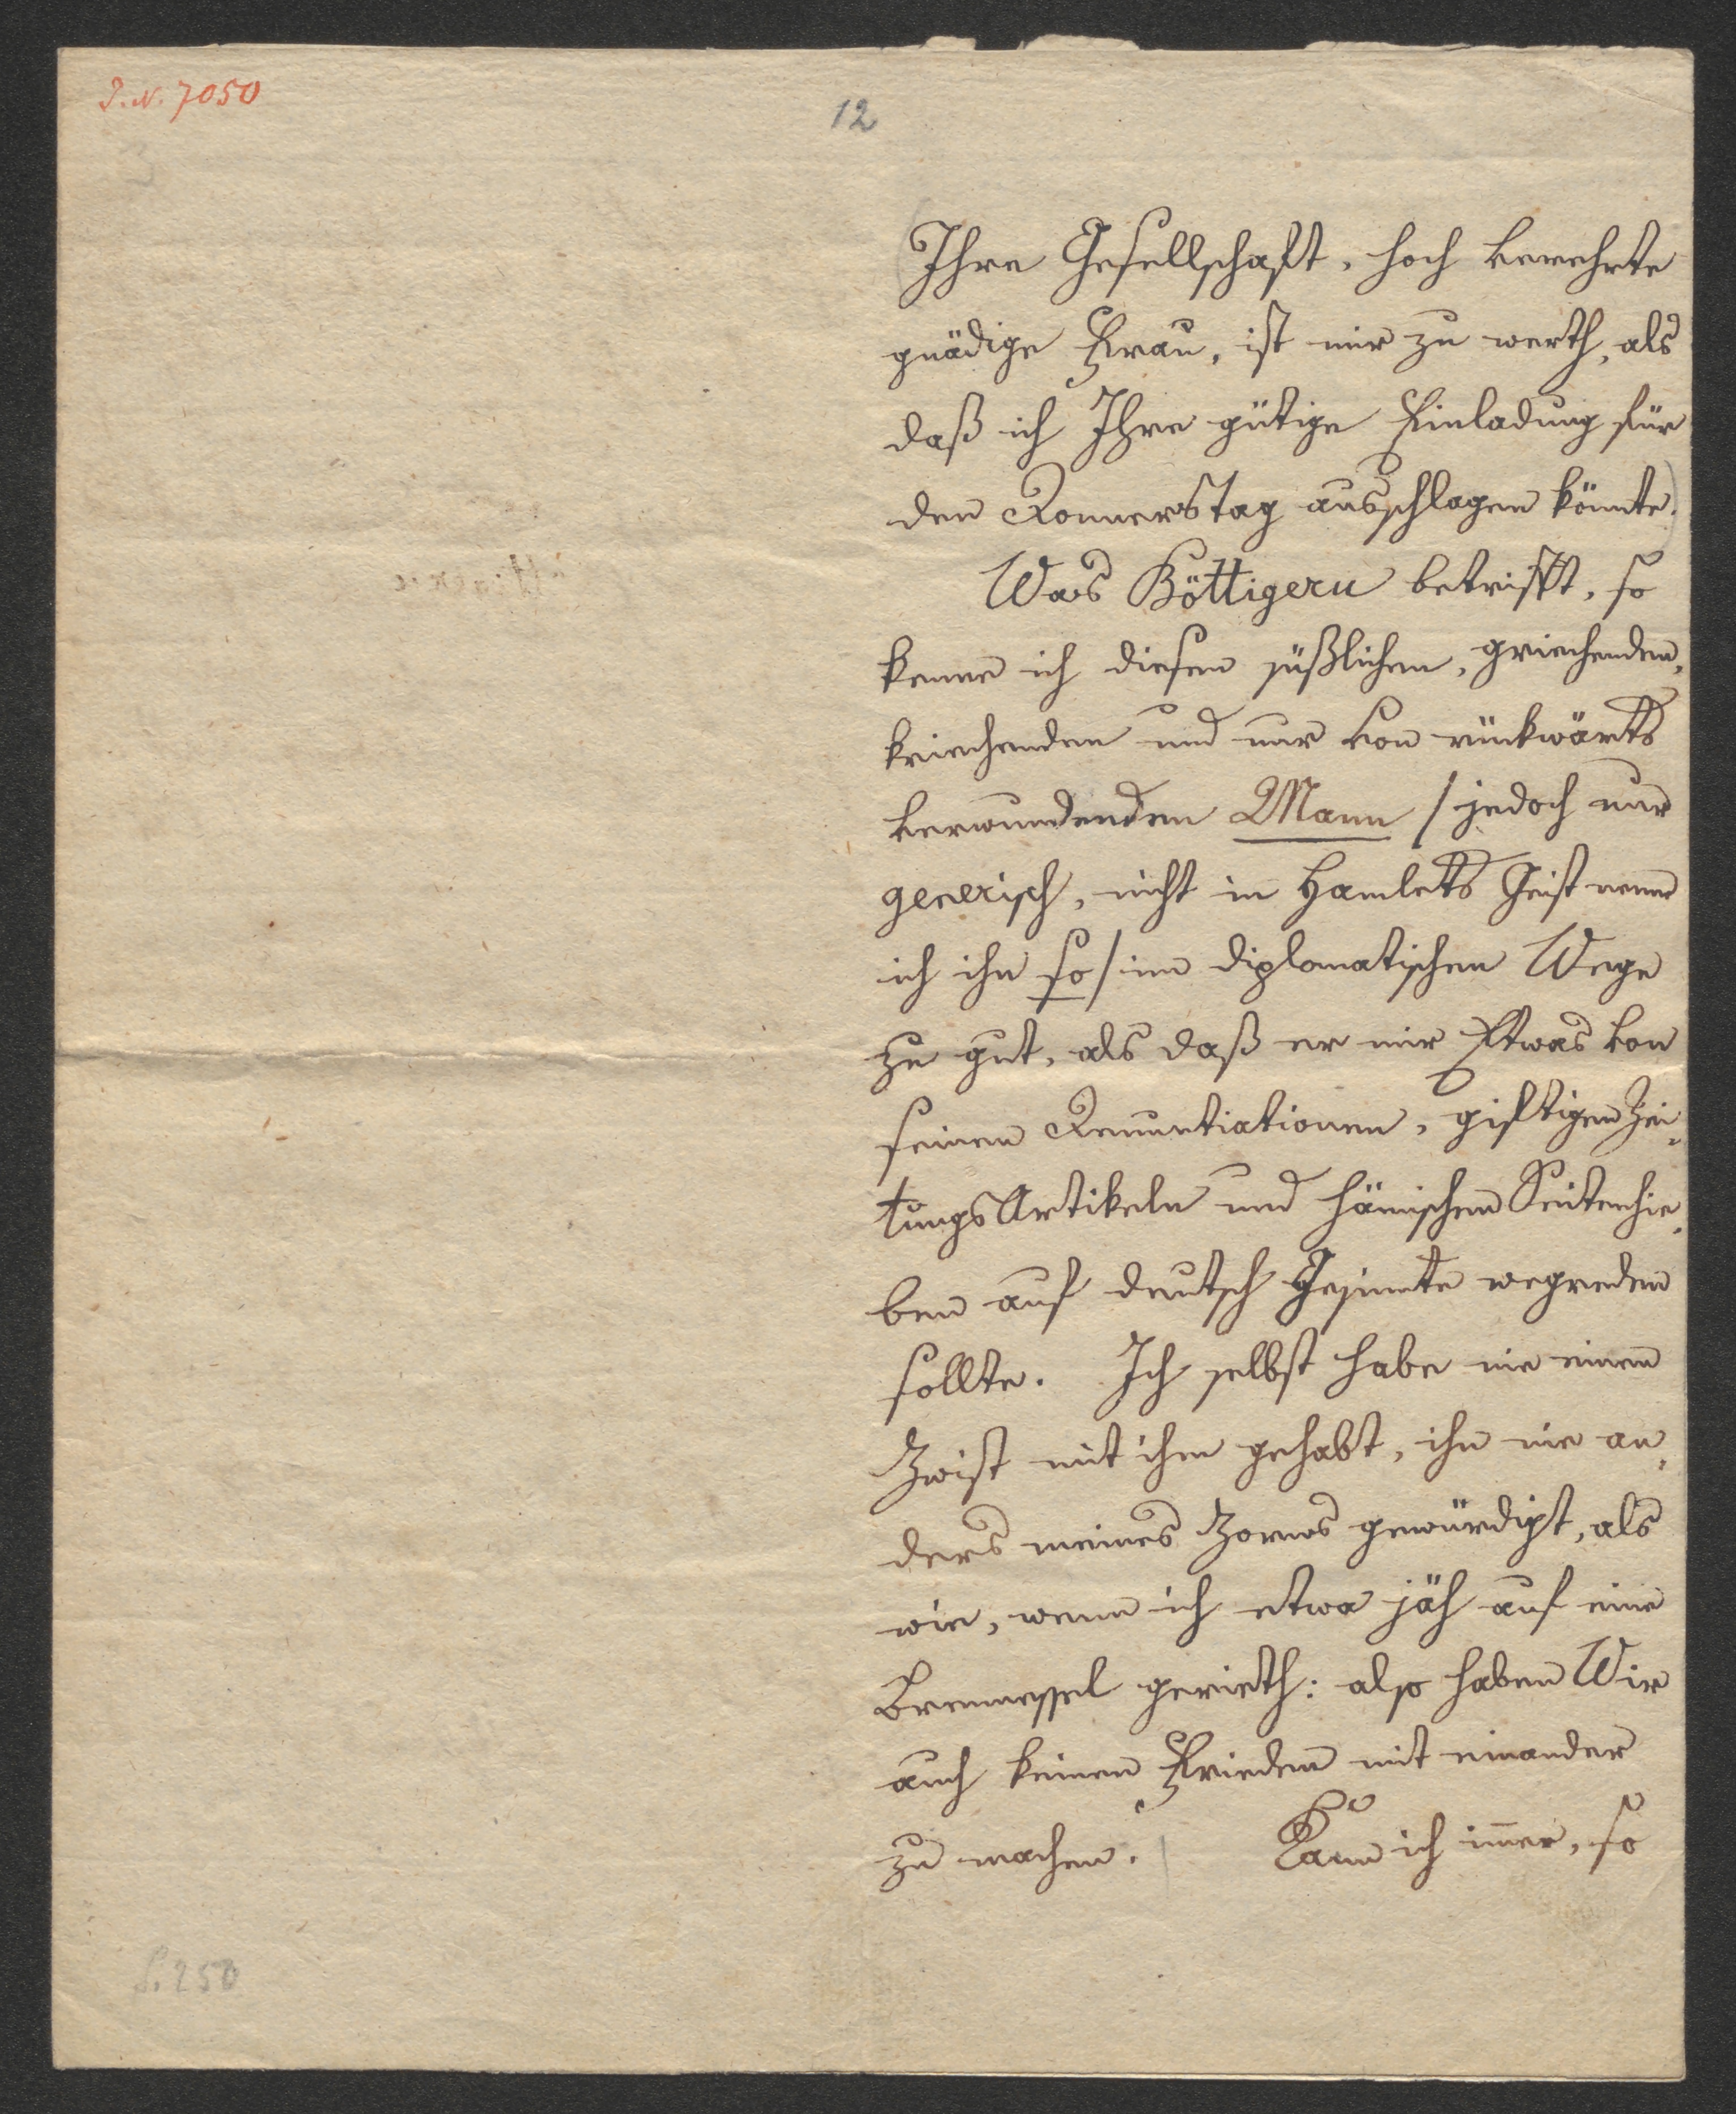 I.N. 7050
12
Ihre Gesellschaft, hoch verehrte
gnädige Frau, ist mir zu werth, als
daß ich Ihre gütige Einladung für
den Donnerstag ausschlagen könnte.
Was Böttigern betrifft, so
kenne ich diesen süßlichen, griechenden,
kriechenden und nur von rückwärts
verwundenden Mann /jedoch nur
generisch, nicht in Hamlets Geist nenne
ich ihn so/ im diplomatischen Wege
zu gut, als daß er mir Etwas von
seinen Denuntiationen, giftigen Zei„
tungsArtikeln und hämischen Seitenhie„
ben auf deutsch Gesinnte wegreden
sollte. Ich selbst habe nie einen
Zwist mit ihm gehabt, ihn nie an„
ders meines Zornes gewürdigt, als
wie, wenn ich etwa jäh auf eine
Brennessel gerieth: also haben Wir
auch keinen Frieden mit einander
zu machen. Kann ich im̅er, so
S. 250